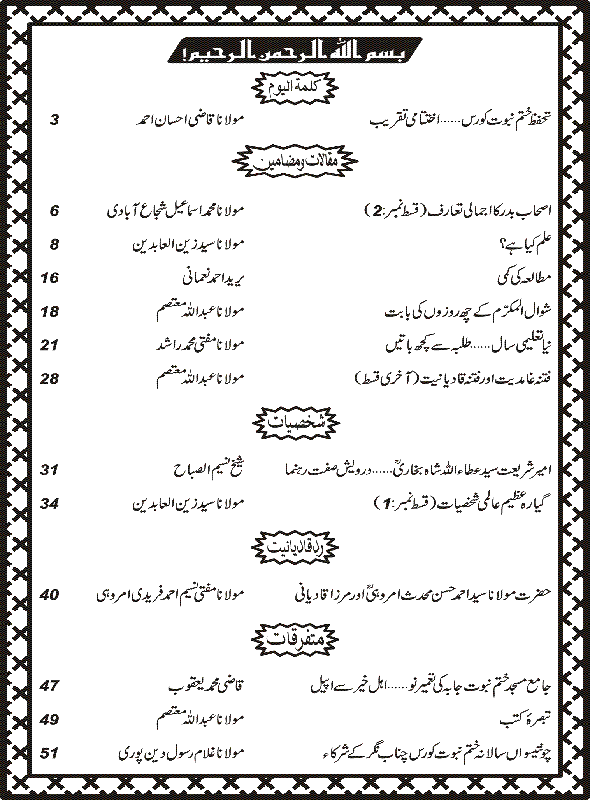 بسم اللہ الرحمن الرحیم!
کلمۃ الیوم
تحفظ ختم نبوت کورس......اختتامی تقریب مولانا قاضی احسان احمد 3
مقالات و مضامین
اصحاب بدر کا اجمالی تعارف (قسط نمبر:2) مولانا محمد اسماعیل شجاع آبادی 6
علم کیا ہے؟ مولانا سید زین العابدین 8
مطالعہ کی کمی برید احمد نعمانی 16
شوال المکرّم کے چھ روزوں کی بابت مولانا عبداللہ معتصم 18
نیا تعلیمی سال......طلبہ سے کچھ باتیں مولانا مفتی محمد راشد 21
فتنہ غامدیت اور فتنہ قادیانیت (آخری قسط) مولانا عبداللہ معتصم 28
شخصیات
امیر شریعت سید عطاء اللہ شاہ بخاریؒ......درویش صفت رہنما شیخ نسیم الصباح 31
گیارہ عظیم عالمی شخصیات (قسط نمبر:1) مولانا سید زین العابدین 34
رد قادیانیت
حضرت مولانا سید احمد حسن محدث امروہیؒ اور مرزا قادیانی مولانا مفتی نسیم احمد فریدی امروہی 40
متفرقات
جامع مسجد ختم نبوت جابہ کی تعمیر نو......اہل خیر سے اپیل قاضی محمد یعقوب 47
تبصرۂ کتب مولانا عبداللہ معتصم 49
چونتیسواں سالانہ ختم نبوت کورس چناب نگر کے شرکاء مولانا غلام رسول دین پوری 51